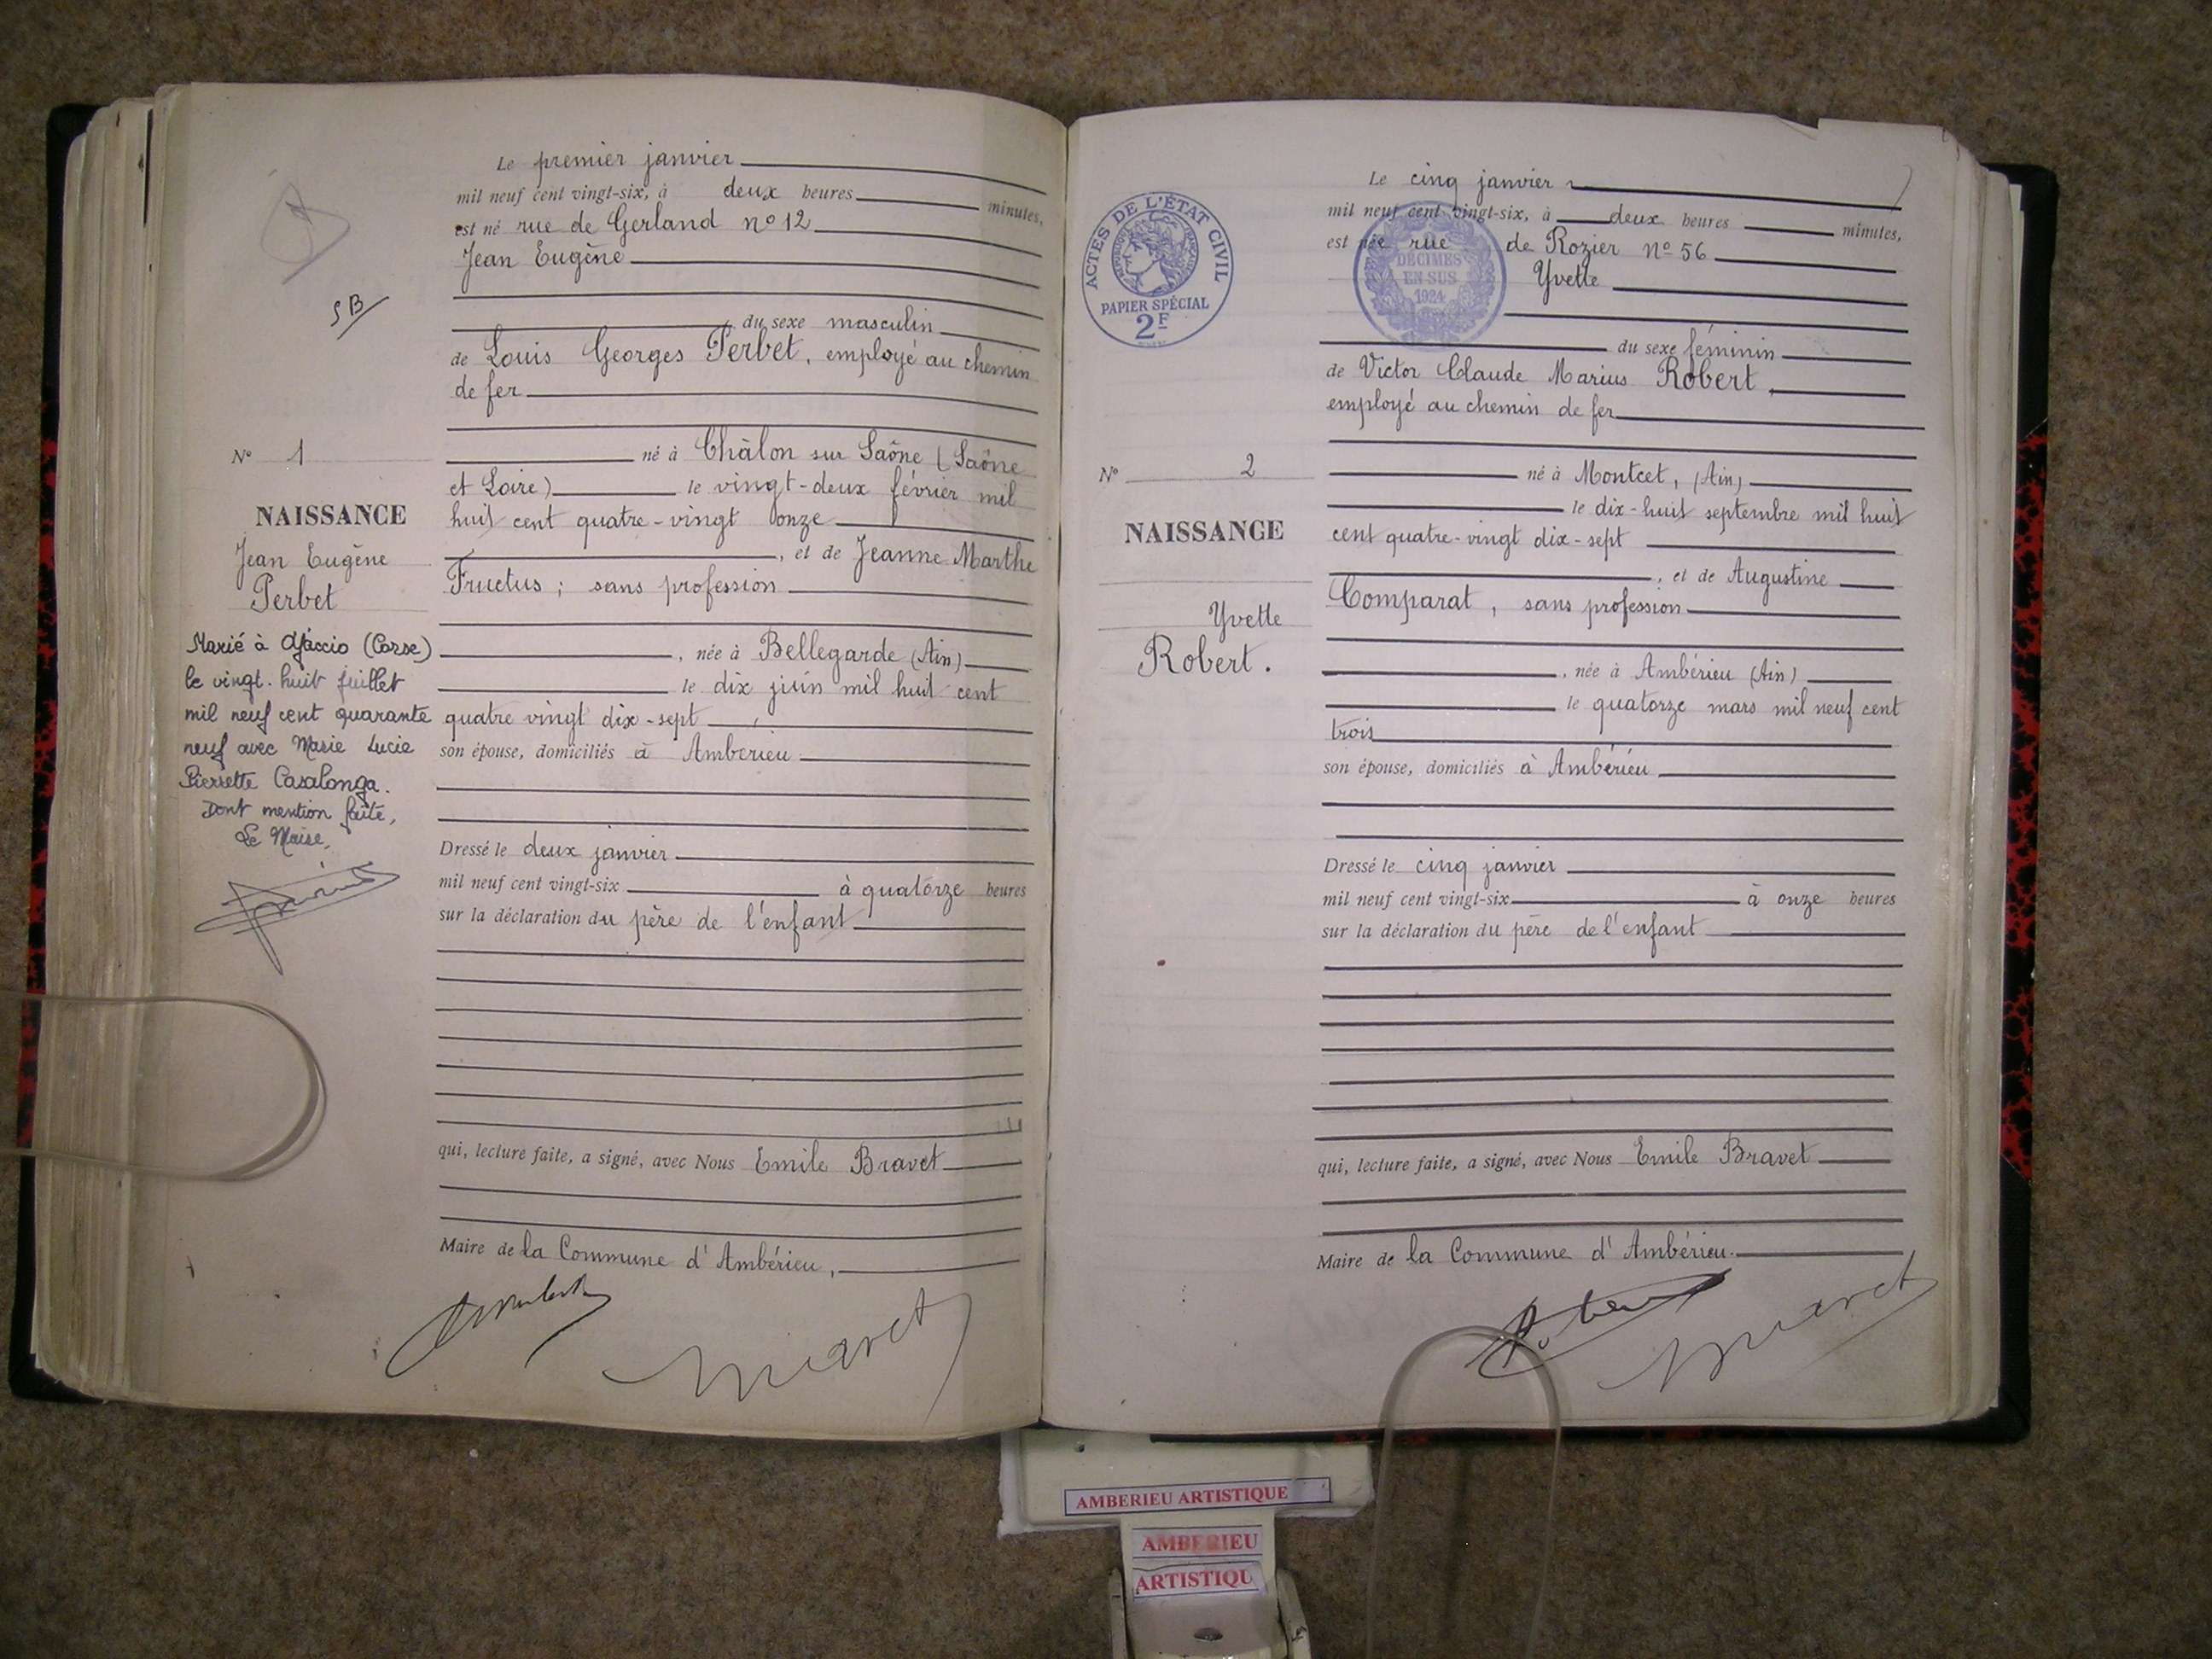 Le premier janvier
mil neuf cent vingt-six, à deux heures minutes,
est né rue de Gerland n° 12
Jean Eugène
du sexe masculin
de Louis Georges Perbet, employé au chemin
de fer
né à Châlon sur Saône (Saône
et Loire) le vingt-deux février mil
huit cent quatre-vingt onze
, et de Jeanne Marthe
Fructus ; sans profession
, née à Bellegarde (Ain)
le dix juin mil huit cent
quatre vingt dix-sept
son épouse, domiciliés à Ambérieu
Dressé le deux janvier
mil neuf cent vingt-six à quatorze heures
sur la déclaration du père de l'enfant
qui, lecture faite, a signé, avec Nous Emile Bravet
Maire de la Commune d'Ambérieu,
SB
N° 1
NAISSANCE
Jean Eugène
Perbet
Marié à Ajaccio (Corse)
le vingt-huit juillet
mil neuf cent quarante
neuf avec Marie Lucie
Pierrette Casalonga.
Dont mention faite,
Le Maire,
ACTES DE L'ÉTAT CIVIL
PAPIER SPÉCIAL
2F
DÉCIMES
EN SUS
1924
Le cinq janvier
mil neuf cent vingt-six, à deux heures minutes,
est née rue de Rozier n° 56
Yvette
du sexe féminin
de Victor Claude Marius Robert,
employé au chemin de fer
né à Montcet, (Ain)
le dix-huit septembre mil huit
cent quatre-vingt dix-sept
, et de Augustine
Comparat, sans profession
, née à Ambérieu (Ain)
le quatorze mars mil neuf cent
trois
son épouse, domiciliés à Ambérieu
Dressé le cinq janvier
mil neuf cent vingt-six à onze heures
sur la déclaration du père de l'enfant
qui, lecture faite, a signé, avec Nous Emile Bravet
Maire de la Commune d'Ambérieu.
N° 2
NAISSANCE
Yvette
Robert.
AMBERIEU ARTISTIQUE
AMBERIEU
ARTISTIQU